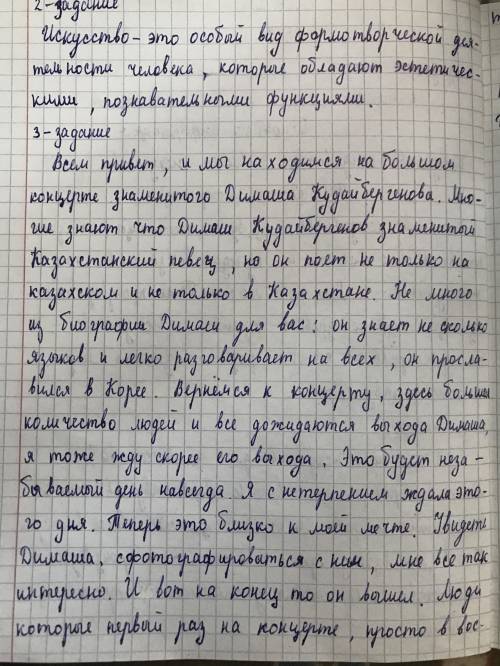 2-задание
Искусство - это особый вид формотворческой дея-
тельности человека, которые обладают эстетичес-
кими, познавательными функциями.
3-задание
Всем привет, и мы находимся на большом
концерте знаменитого Димаша Кудайбергенова. Мно-
гие знают что Димаш Кудайбергенов знаменитый
Казахстанский певец, но он поет не только на
казахском и не только в Казахстане. Не много
из биографии Димаси для вас: он знает не сколько
языков и легко разговаривает на всех, он просла-
вился в Корее. Вернёмся к концерту, здесь большы
количество людей и все дожидаются выхода Димаша,
я тоже жду скорее его выхода. Это будет неза-
бываемый день навсегда. Я с нетерпением ждала это-
го дня. Теперь это близко к моей мечте. Увидеть
Димаша, сфотографироваться с ним, мне все так
интересно. И вот на конец то он вышел. Люди
которые первый раз на концерте, просто в вос-